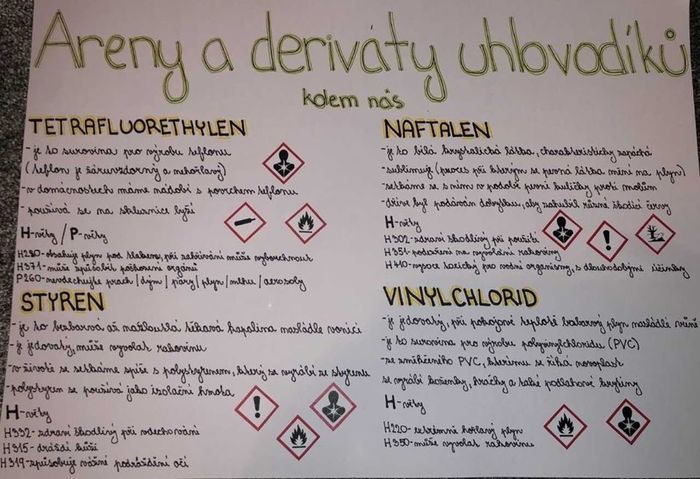 Areny a deriváty uhlovodíků
kolem nás
TETRAFLUORETHYLEN
- je to surovina pro výrobu teflonu
(teflon je žáruvzdorný a nehořlavý)
- v domácnostech máme nádobí s povrchem teflonu
- používá se na skluznice lyží
H-věty / P-věty
H280-obsahuje plyn pod tlakem, při zahřívání může vybuchnout
H371-může způsobit poškození orgánů
P260-nevdechujte prach/dým/páry/plyn/mlhu/aerosoly
STYREN
- je to bezbarvá až nažloutlá těkavá kapalina nasládle vonící
- je jedovatý, může vyvolat rakovinu
- v životě se setkáme spíše s polystyrenem, který se vyrábí ze styrenu
- polystyren se používá jako izolační hmota
H-věty
H332-zdraví škodlivý při vdechování
H315-dráždí kůži
H319-způsobuje vážné podráždění očí
NAFTALEN
- je to bílá krystalická látka, charakteristicky zapáchá
- sublimuje (proces při kterým se pevná látka mění na plyn)
- setkáme se s ním v podobě pevné kuličky proti molům
- dříve byl podáván dobytku, aby zahubil různé škodící červy
H-věty
H302-zdraví škodlivý při požití
H351-podezření na vyvolání rakoviny
H410-vysoce toxický pro vodní organismy, s dlouhodobými účinky
VINYLCHLORID
- je jedovatý, při pokojové teplotě bezbarvý plyn nasládlé vůně
- je to surovina pro výrobu polyvinylchloridu (PVC)
- ze změkčeného PVC, kterému se říká novoplast
se vyrábí koženky, hračky a také podlahové krytiny
H-věty
H220-extrémně hořlavý plyn
H350-může vyvolat rakovinu